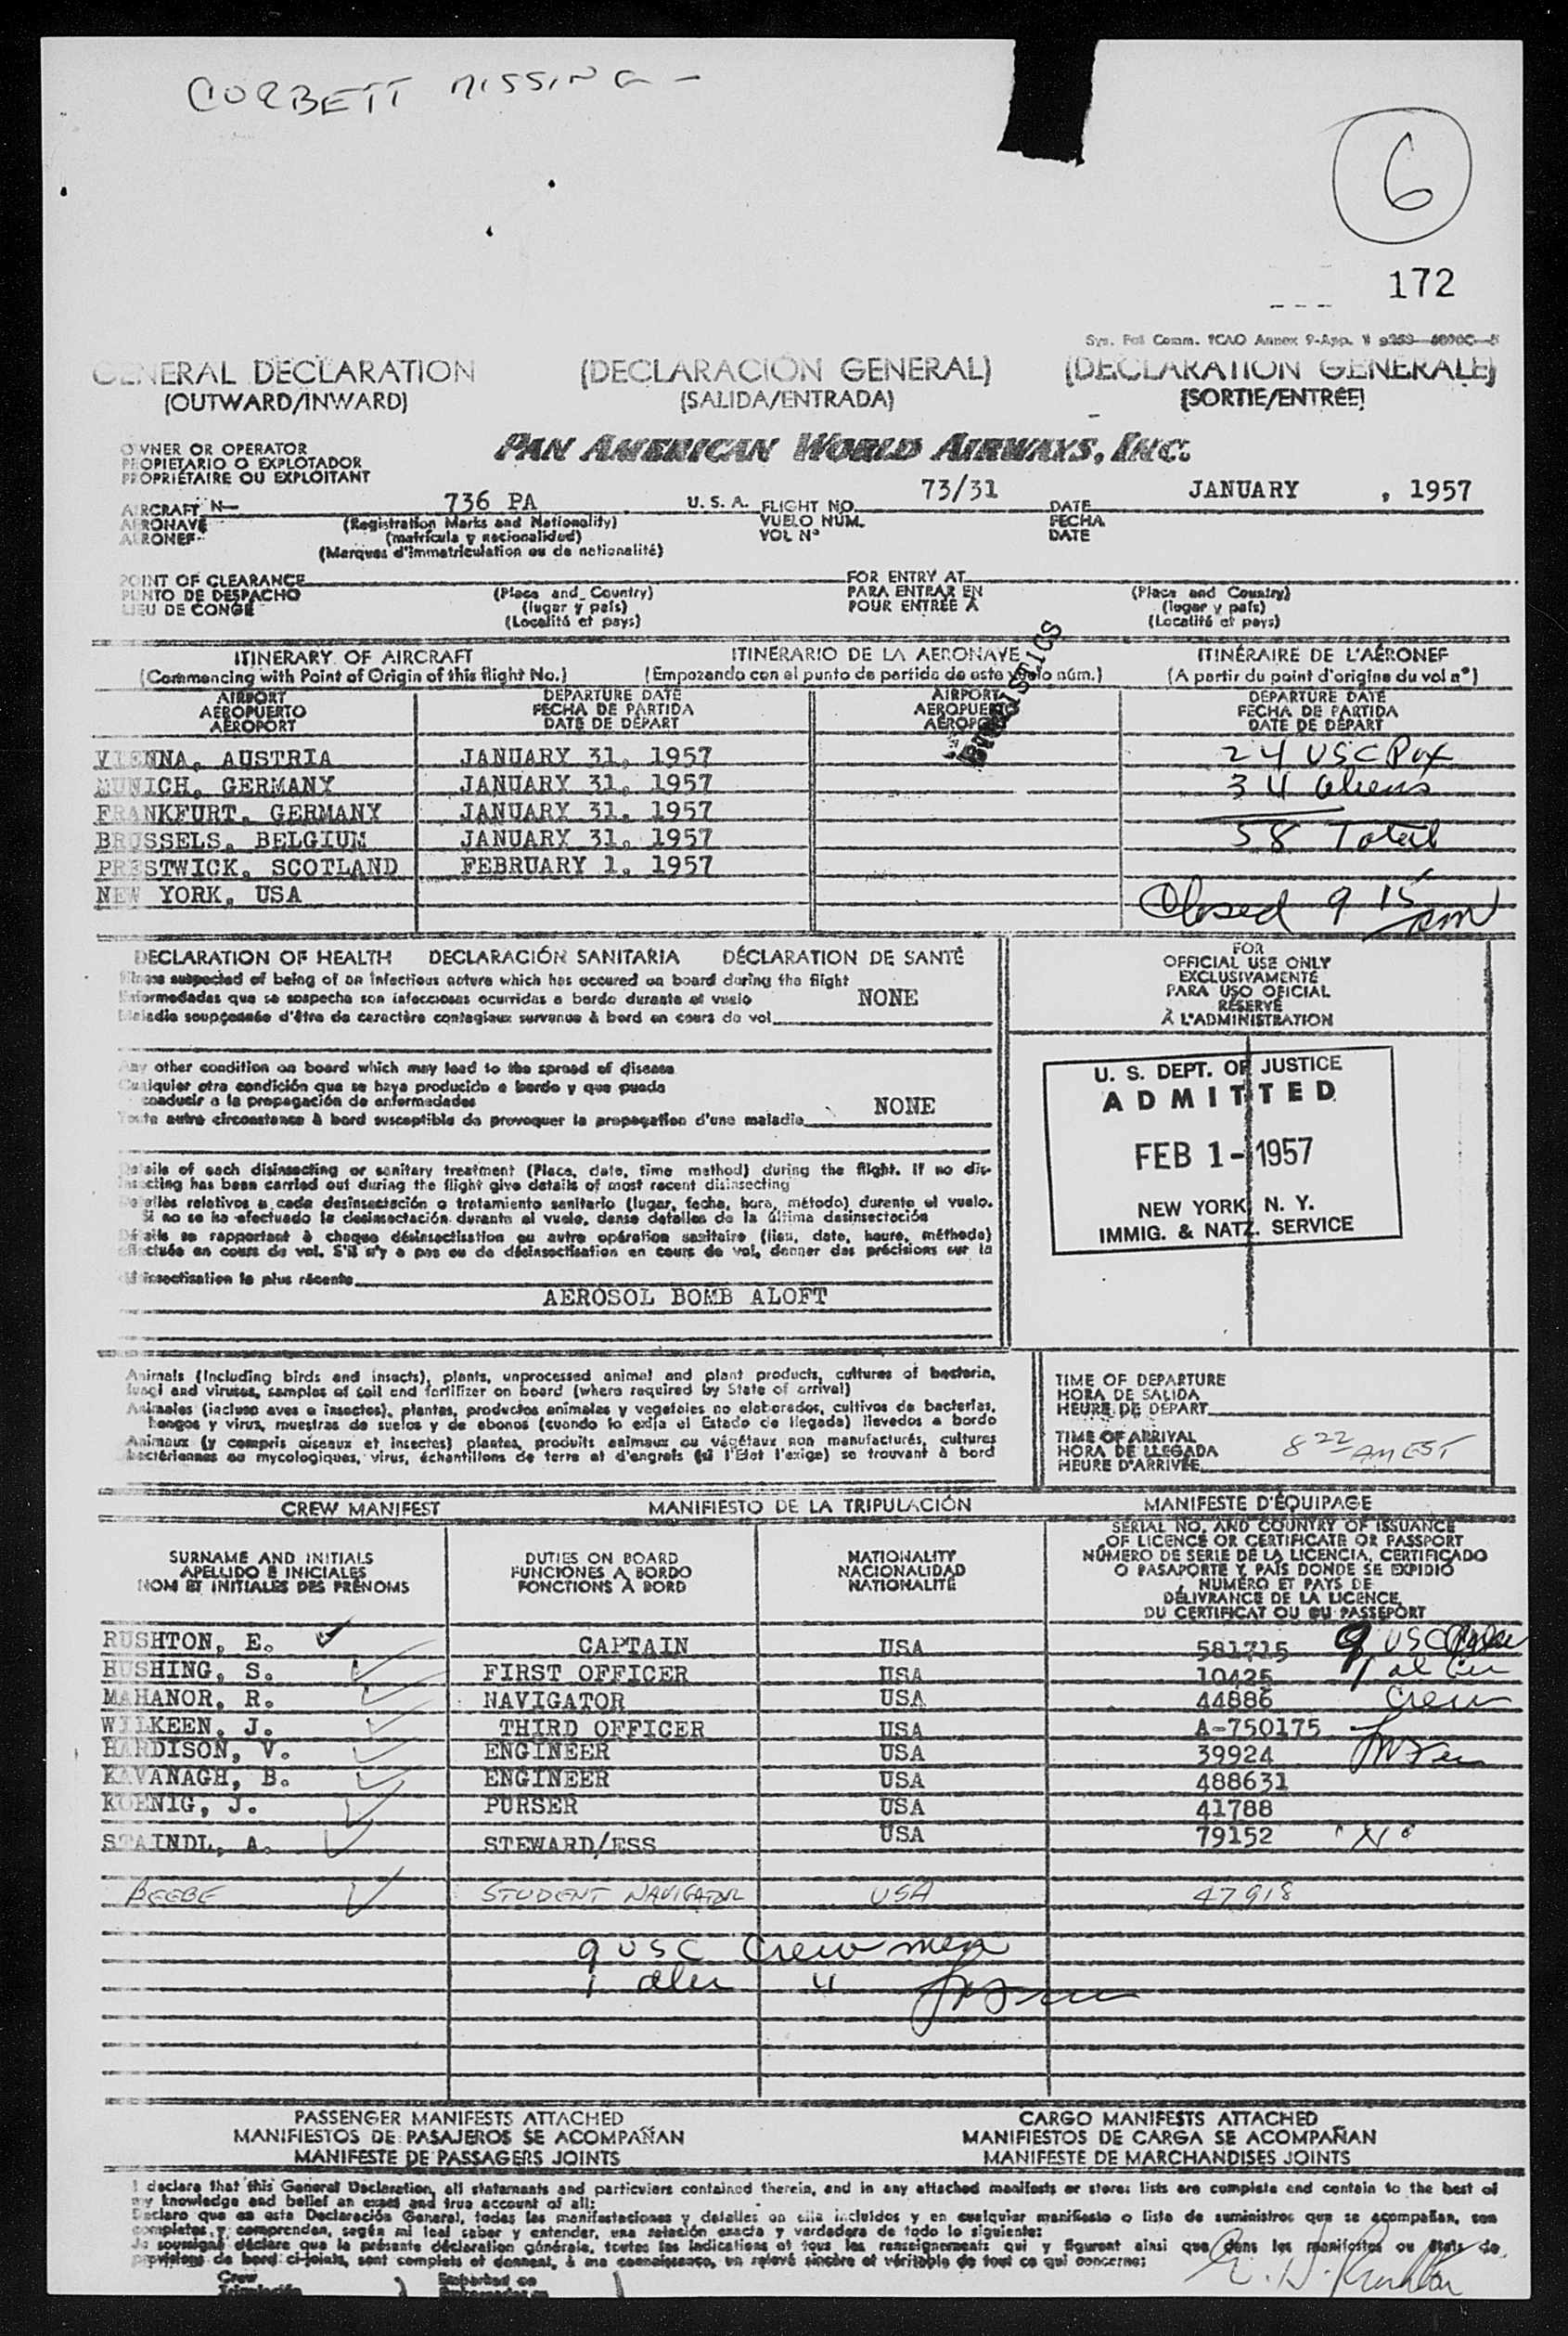 CORBETT MISSING -
6
172
GENERAL DECLARATION (DECLARACIÓN GENERAL) (DECLARATION GENERALE)
(OUTWARD/INWARD) (SALIDA/ENTRADA) (SORTIE/ENTRÉE)
OWNER OR OPERATOR
PROPIETARIO O EXPLOTADOR
PROPRIÉTAIRE OU EXPLOITANT
PAN AMERICAN WORLD AIRWAYS, INC.
AIRCRAFT N- 736 PA U.S.A. FLIGHT NO. 73/31 DATE JANUARY , 1957
AERONAVE (Registration Marks and Nationality) VUELO NÚM. FECHA
AERONEF (matrícula y nacionalidad) VOL Nº DATE
(Marques d'immatriculation ou de nationalité)
POINT OF CLEARANCE FOR ENTRY AT
PUNTO DE DESPACHO (Place and Country) PARA ENTRAR EN (Place and Country)
LIEU DE CONGÉ (lugar y país) POUR ENTRÉE À (lugar y país)
(Localité et pays) (Localité et pays)
ITINERARY OF AIRCRAFT ITINERARIO DE LA AERONAVE ITINÉRAIRE DE L'AÉRONEF
(Commencing with Point of Origin of this flight No.) (Empezando con el punto de partida de este vuelo núm.) (A partir du point d'origine du vol nº)
AIRPORT DEPARTURE DATE AIRPORT DEPARTURE DATE
AEROPUERTO FECHA DE PARTIDA AEROPUERTO FECHA DE PARTIDA
AÉROPORT DATE DE DÉPART AÉROPORT DATE DE DÉPART
VIENNA, AUSTRIA JANUARY 31, 1957 24 USC Pax
MUNICH, GERMANY JANUARY 31, 1957 34 Aliens
FRANKFURT, GERMANY JANUARY 31, 1957
BRUSSELS, BELGIUM JANUARY 31, 1957 58 Total
PRESTWICK, SCOTLAND FEBRUARY 1, 1957
NEW YORK, USA Closed 9 15 am
DECLARATION OF HEALTH DECLARACIÓN SANITARIA DÉCLARATION DE SANTÉ
Illness suspected of being of an infectious nature which has occured on board during the flight
Enfermedades que se sospecha son infecciosas ocurridas a bordo durante el vuelo NONE
Maladie soupçonnée d'être de caractère contagieux survenue à bord en cours de vol
FOR
OFFICIAL USE ONLY
EXCLUSIVAMENTE
PARA USO OFICIAL
RÉSERVÉ
À L'ADMINISTRATION
Any other condition on board which may lead to the spread of disease
Cualquier otra condición que se haya producido a bordo y que pueda
conducir a la propagación de enfermedades NONE
Toute autre circonstance à bord susceptible de provoquer la propagation d'une maladie
U. S. DEPT. OF JUSTICE
ADMITTED
FEB 1 - 1957
NEW YORK, N. Y.
IMMIG. & NATZ. SERVICE
Details of each disinsecting or sanitary treatment (Place, date, time method) during the flight. If no dis-
insecting has been carried out during the flight give details of most recent disinsecting
Detalles relativos a cada desinsectación o tratamiento sanitario (lugar, fecha, hora, método) durante el vuelo.
Si no se ha efectuado la desinsectación durante el vuelo, dense detalles de la última desinsectación
Détails se rapportant à chaque désinsectisation ou autre opération sanitaire (lieu, date, heure, méthode)
effectuée en cours de vol. S'il n'y a pas eu de désinsectisation en cours de vol, donner des précisions sur la
désinsectisation la plus récente
AEROSOL BOMB ALOFT
Animals (Including birds and insects), plants, unprocessed animal and plant products, cultures of bacteria,
fungi and viruses, samples of soil and fertilizer on board (where required by State of arrival)
Animales (incluso aves e insectos), plantas, productos animales y vegetales no elaborados, cultivos de bacterias,
hongos y virus, muestras de suelos y de abonos (cuando lo exija el Estado de llegada) llevados a bordo
Animaux (y compris oiseaux et insectes) plantes, produits animaux ou végétaux non manufacturés, cultures
bactériennes ou mycologiques, virus, échantillons de terre et d'engrais (si l'Etat l'exige) se trouvant à bord
TIME OF DEPARTURE
HORA DE SALIDA
HEURE DE DÉPART
TIME OF ARRIVAL
HORA DE LLEGADA 8 22 AM EST
HEURE D'ARRIVÉE
CREW MANIFEST MANIFIESTO DE LA TRIPULACIÓN MANIFESTE D'ÉQUIPAGE
SURNAME AND INITIALS
APELLIDO E INICIALES
NOM ET INITIALES DES PRÉNOMS
DUTIES ON BOARD
FUNCIONES A BORDO
FONCTIONS À BORD
NATIONALITY
NACIONALIDAD
NATIONALITÉ
SERIAL NO. AND COUNTRY OF ISSUANCE
OF LICENCE OR CERTIFICATE OR PASSPORT
NÚMERO DE SERIE DE LA LICENCIA, CERTIFICADO
O PASAPORTE Y PAÍS DONDE SE EXPIDIÓ
NUMÉRO ET PAYS DE
DÉLIVRANCE DE LA LICENCE,
DU CERTIFICAT OU DU PASSEPORT
RUSHTON, E. CAPTAIN USA 581715 9 USC
HUSHING, S. FIRST OFFICER USA 10425
MAHANOR, R. NAVIGATOR USA 44886 Crew
WILKEEN, J. THIRD OFFICER USA A-750175
HARDISON, V. ENGINEER USA 39924
KAVANAGH, B. ENGINEER USA 488631
KOENIG, J. PURSER USA 41788
STAINDL, A. STEWARD/ESS USA 79152
BEEBE STUDENT NAVIGATOR USA 47918
9 USC Crew men
1 alien "
PASSENGER MANIFESTS ATTACHED CARGO MANIFESTS ATTACHED
MANIFIESTOS DE PASAJEROS SE ACOMPAÑAN MANIFIESTOS DE CARGA SE ACOMPAÑAN
MANIFESTE DE PASSAGERS JOINTS MANIFESTE DE MARCHANDISES JOINTS
I declare that this General Declaration, all statements and particulars contained therein, and in any attached manifests or stores lists are complete and contain to the best of
my knowledge and belief an exact and true account of all:
Declaro que en esta Declaración General, todas las manifestaciones y detalles en ella incluidos y en cualquier manifiesto o lista de suministros que se acompañan, son
completos, y comprenden, según mi leal saber y entender, una relación exacta y verdadera de todo lo siguiente:
Je soussigné déclare que la présente déclaration générale, toutes les indications et tous les renseignements qui y figurent ainsi que dans les manifestes ou états de
provisions de bord ci-joints, sont complets et donnent, à ma connaissance, un relevé sincère et véritable de tout ce qui concerne:
Crew Embarked on